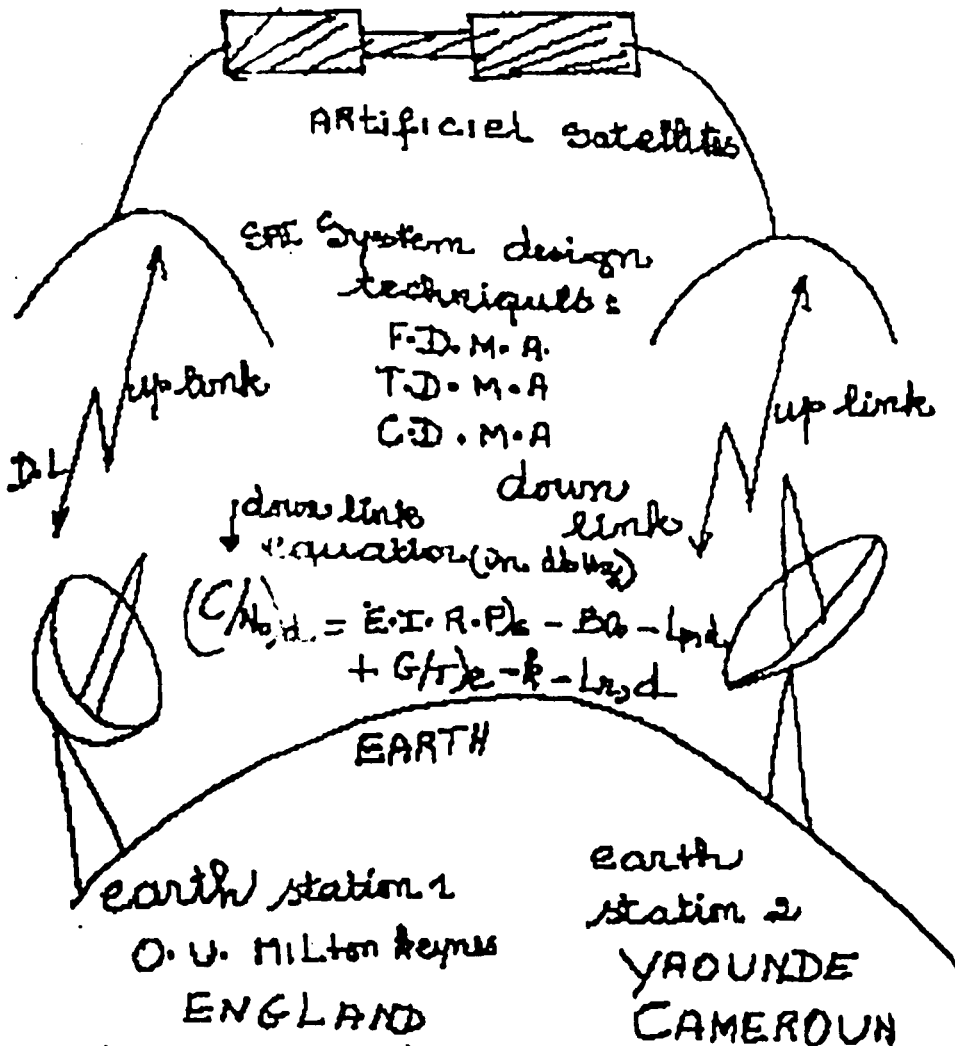 ARtificiel satellites
SAT System design
techniques:
F.D.M.A.
T.D.M.A
C.D.M.A
up link
D.L
up link
down
link
down link
equation (in dbHz)
(C/No)d = E.I.R.P)s - BO - Lp,d
+ G/T)e - k - Lr,d
EARTH
earth station 1
O.U. MILton keynes
ENGLAND
earth
station 2
YAOUNDE
CAMEROUN